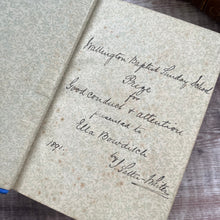 Wellington Baptist Sunday School
Prize
for
Good conduct & attention
presented to
Ella Bowditch
by
1891